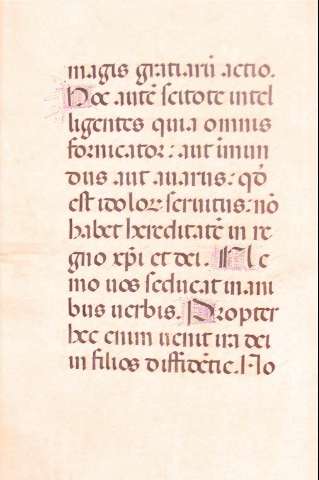 magis gratiarū actio.
Hoc autē scitote intel
ligentes quia omnis
fornicator: aut inmun
dus aut auarus: qđ
est idolor seruitus: nō
habet hereditatē in re
gno xp̄i et dei. Ne
mo uos seducat inani
bus uerbis. Propter
hec enim uenit ira dei
in filios diffidētie. No